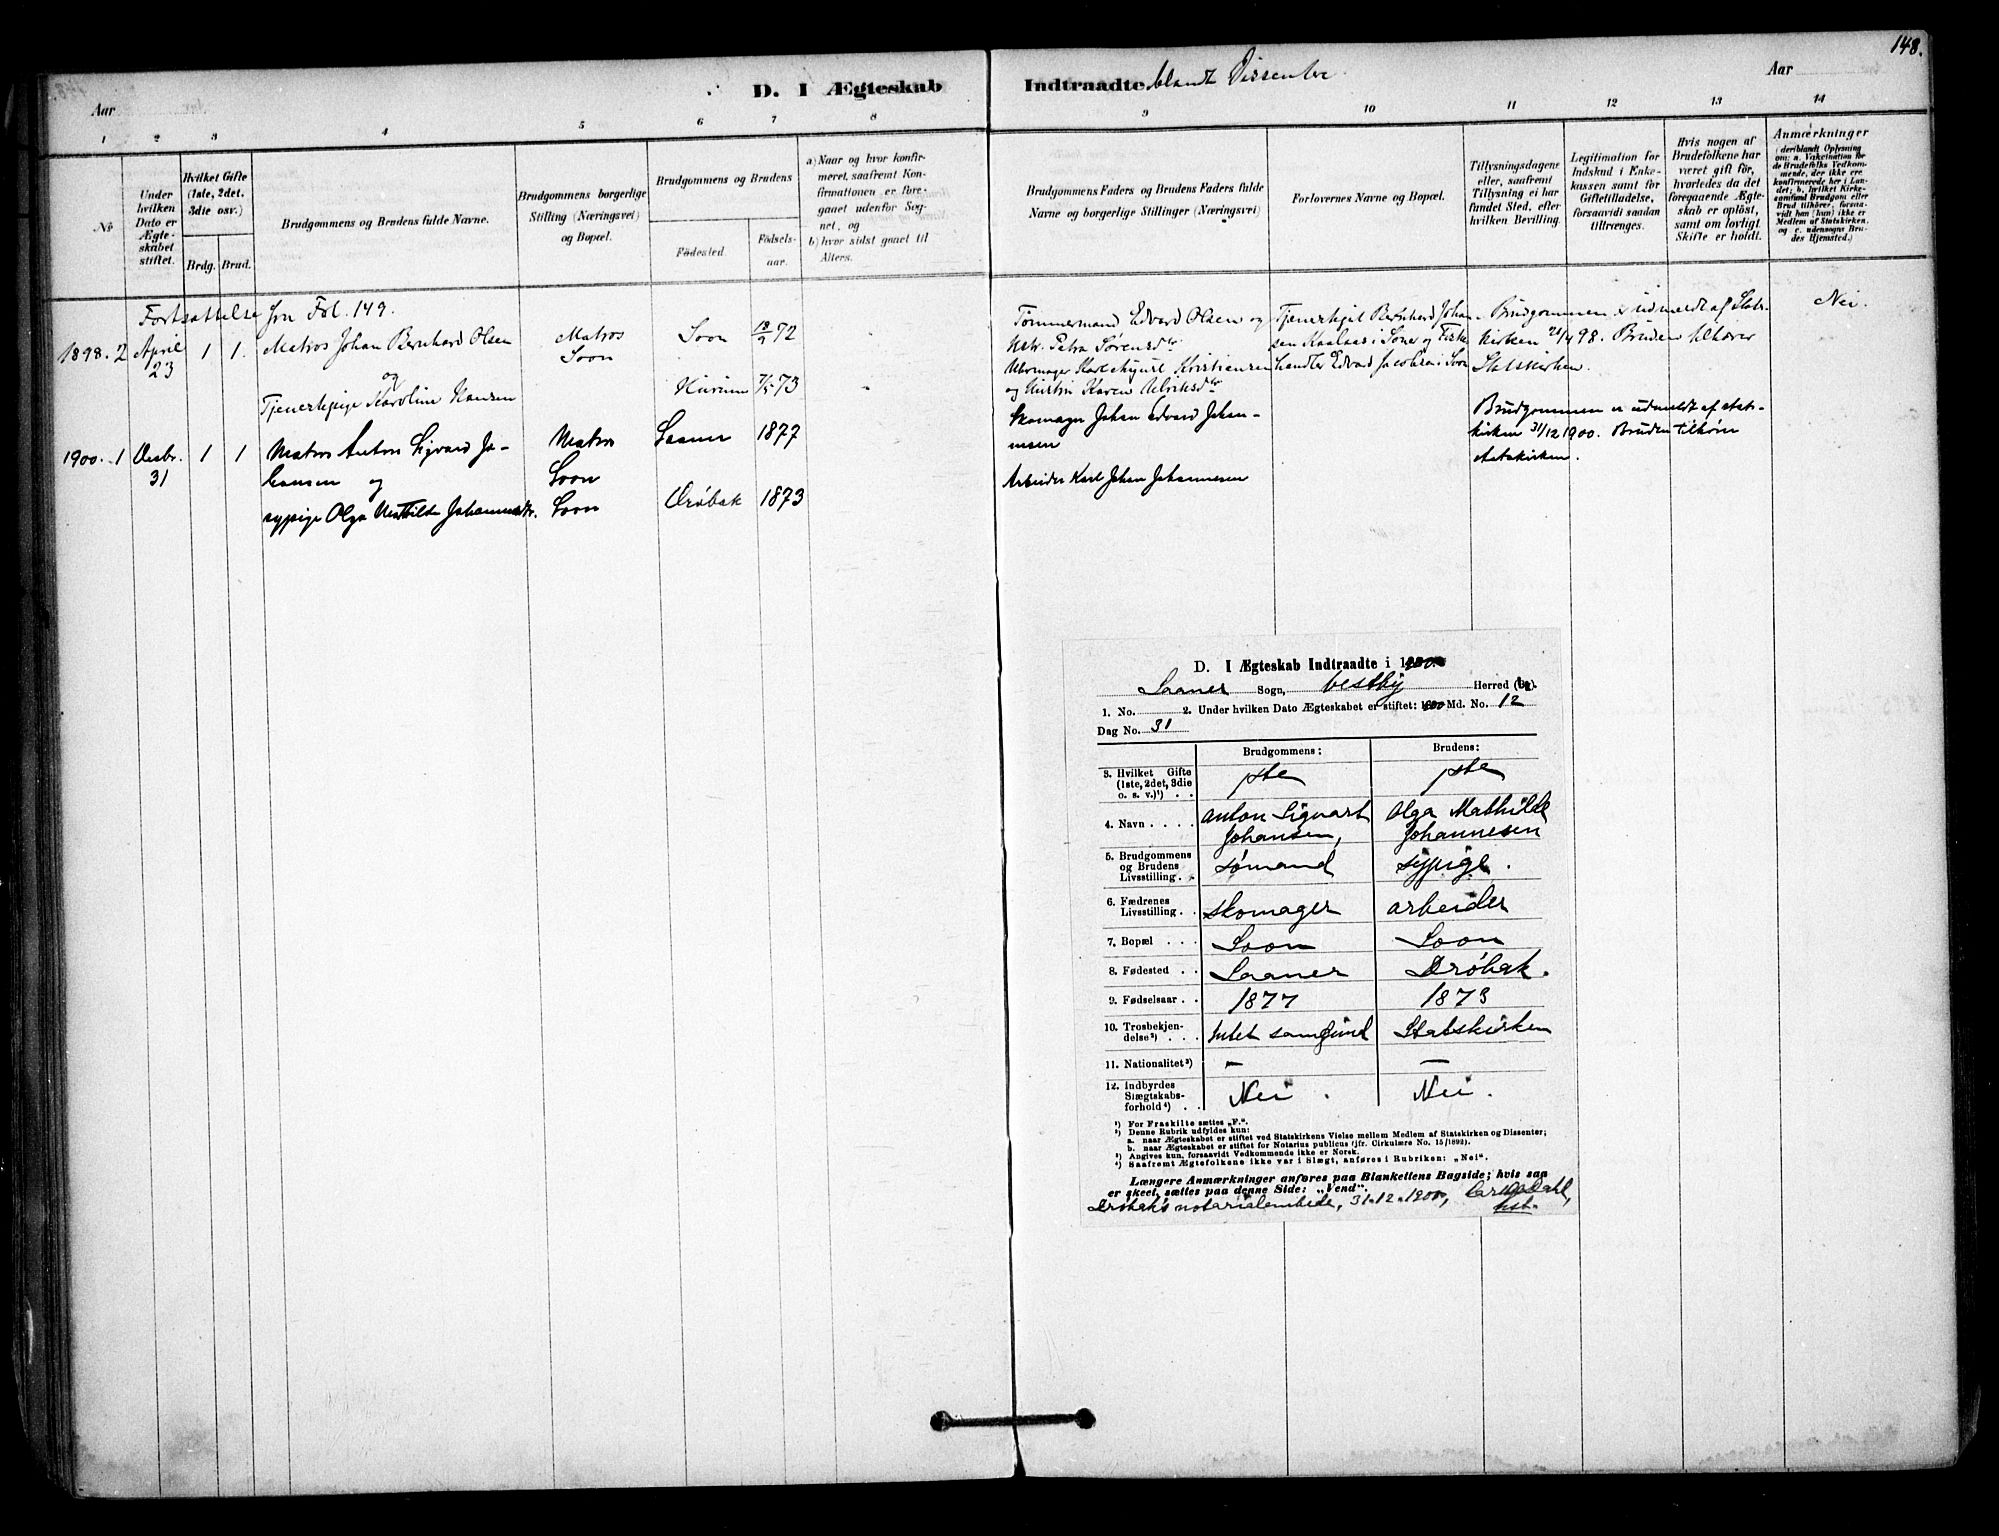 148.
Aar
D. I Ægteskab Indtraadte blandt Dissentere
Aar
1 2 3 4 5 6 7 8 9 10 11 12 13 14
No
Under hvilken Dato er Ægteskabet stiftet.
Hvilket Gifte (1ste, 2det, 3die osv.)
Brdg. Brud.
Brudgommens og Brudens fulde Navne.
Brudgommens borgerlige Stilling (Næringsvei) og Bopæl.
Brudgommens og Brudens
Fødested. Fødselsaar.
a) Naar og hvor konfirmeret, saafremt Konfirmationen er foregaaet udenfor Sognet, og
b) hvor sidst gaaet til Alters.
Brudgommens Faders og Brudens Faders fulde Navne og borgerlige Stillinger (Næringsvei)
Forlovernes Navne og Bopæl.
Tillysningsdagene eller, saafremt Tillysning ei har fundet Sted, efter hvilken Bevilling.
Legitimation for Indskud i Enkekassen samt for Giftetilladelse, forsaavidt saadan tiltrænges.
Hvis nogen af Brudefolkene har været gift før, hvorledes da det foregaaende Ægteskab er opløst, samt om lovligt Skifte er holdt.
Anmærkninger (deriblandt Oplysning om: a. Vakcination for de Brudefolks Vedkommende, der ikke ere konfirmerede her i Landet; b. hvilket Kirkesamfund Brudgom eller Brud tilhører, forsavidt han (hun) ikke er Medlem af Statskirken, og c. udensogns Brudes Hjemsted.)
Fortsættelse fra Fol. 149.
1898. 2 April 23 1 1. Matros Johan Bernhard Olsen
og
Tjenerpige Karoline Hansen
Matros
Soon
Soon 72
Hurum 7/5 73
Tømmermand Edvard Olsen og
Hstr. Petra Sørensdtr
Uhrmager Karl August Kristiansen
og Hustru Karen Ulriksdtr
Tjenerkarl Bernhard Johansen i Soner og Fiskehandler Edvard Jacobsen i Soon
Brudgommen er udmeldt af Statskirken 21/4 98. Bruden tilhører
Statskirken.
Nei.
1900. 1 Desbr. 31 1 1 Matros Anton Sigvard Johansen og
sypige Olga Mathilde Johannesdtr.
Matros
Soon
Soon
Saaner 1877
Drøbak 1873
Skomager Johan Edvard Johannesen
Arbeider Karl Johan Johannesen
Brudgommen er udmeldt af statskirken 31/12 1900. Bruden tilhører
statskirken.
D. I Ægteskab Indtraadte i 1900.
Saaner Sogn, Vestby Herred (By).
1. No. 2. Under hvilken Dato Ægteskabet er stiftet: 1900 Md. No. 12
Dag No. 31
Brudgommens: Brudens:
3. Hvilket Gifte (1ste, 2det, 3die o. s. v.)¹) . . 1ste 1ste
4. Navn . . . . Anton Sigvart Johansen, Olga Mathilde Johannesen
5. Brudgommens og Brudens Livsstilling. . Sømand Sypige.
6. Fædrenes Livsstilling . . Skomager arbeider
7. Bopæl . . . Soon Soon
8. Fødested . . Saaner Drøbak.
9. Fødselsaar . . 1877 1873
10. Trosbekjendelse²) . . . Intet samfund Statskirken
11. Nationalitet³) — —
12. Indbyrdes Slægtskabsforhold⁴) . . Nei. Nei.
¹) For Fraskilte sættes „F.".
²) Denne Rubrik udfyldes kun:
a. naar Ægteskabet er stiftet ved Statskirkens Vielse mellem Medlem af Statskirken og Dissenter;
b. naar Ægteskabet er stiftet for Notarius publicus (jfr. Cirkulære No. 15/1892).
³) Angives kun, forsaavidt Vedkommende ikke er Norsk.
⁴) Saafremt Ægtefolkene ikke var i Slægt, anføres i Rubriken: „Nei".
Længere Anmærkninger anføres paa Blankettens Bagside; hvis saa er skeet, sættes paa denne Side: „Vend".
Drøbaks notarialembede, 31.12.1900, Dahl,